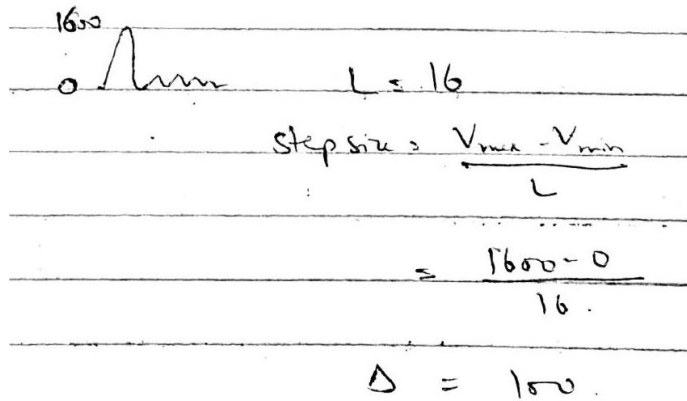 1600
0
L = 16
step size = Vmax - Vmin
L
= 1600 - 0
16.
Δ = 100.